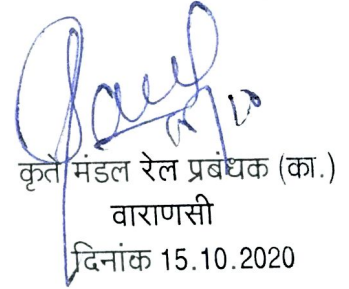 कृते मंडल रेल प्रबंधक (का.)
वाराणसी
दिनांक 15.10.2020